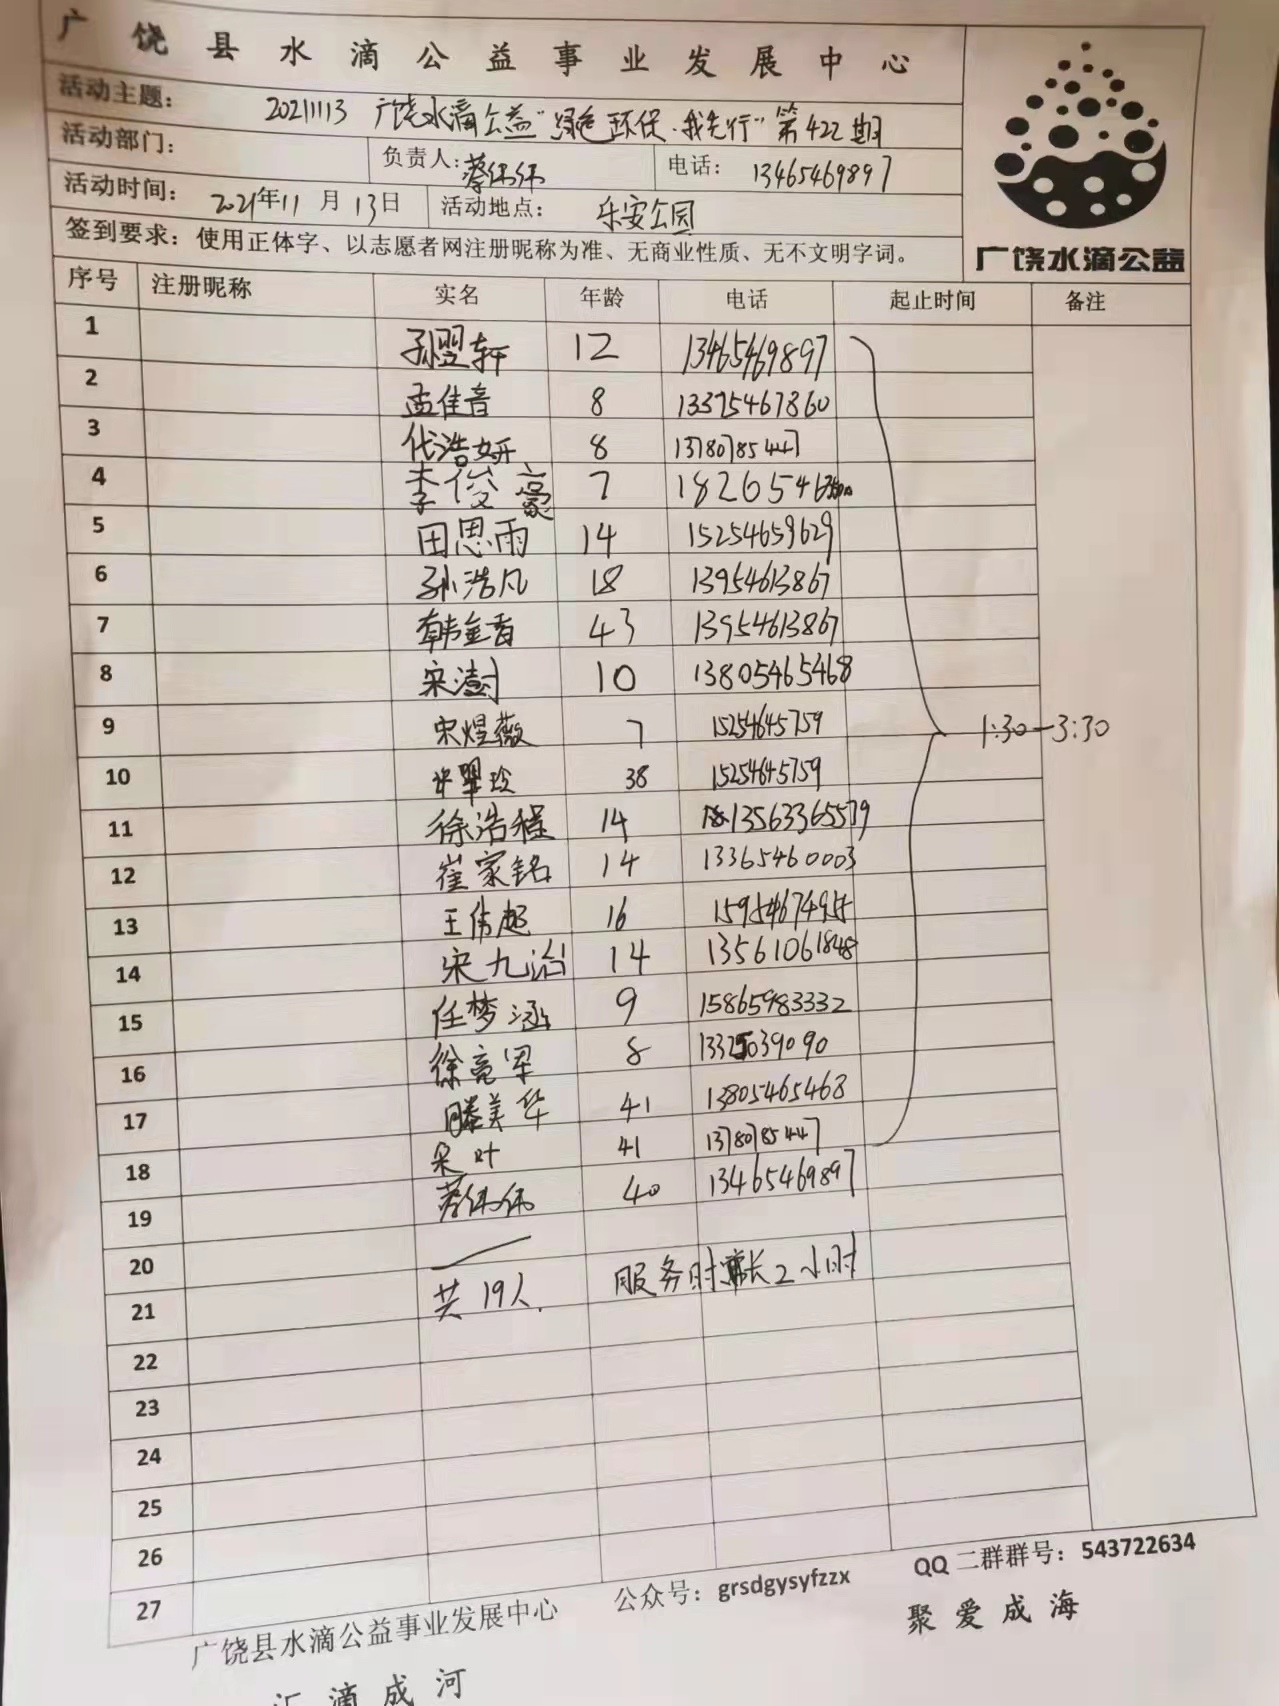 广饶县水滴公益事业发展中心
活动主题： 20211113 广饶水滴公益“绿色环保·我先行”第422期
活动部门： 负责人：蔡伟伟 电话： 13465469897
活动时间： 2021年11月13日 活动地点： 乐安公园
签到要求：使用正体字、以志愿者网注册昵称为准、无商业性质、无不文明字词。
广饶水滴公益
序号 注册昵称 实名 年龄 电话 起止时间 备注
1 孙翌轩 12 13465469897
2 孟佳音 8 13375467860
3 代浩妍 8 13780785447
4 李俊豪 7
5 田思雨 14 15254659629
6 孙浩凡 18 13954613867
7 韩金香 43 13954613867
8 宋澍 10 13805465468
9 宋煜薇 7 15254645759
1:30-3:30
10 38 15254645759
11 徐浩程 14 13563365579
12 崔家铭 14 13365460003
13 王伟超 16 15954674955
14 宋九治 14 13561061848
15 任梦涵 9 15865983332
16 徐亮军 8 13325039090
17 滕美华 41 13805465468
18 朵叶 41 13780785447
19 蔡伟伟 40 13465469897
20
21 共19人. 服务时长2小时
22
23
24
25
26
27
广饶县水滴公益事业发展中心 公众号：grsdgysyfzzx QQ二群群号：543722634
汇滴成河 聚爱成海